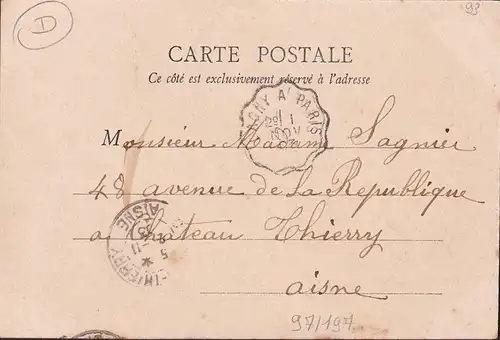 D
93
CARTE POSTALE
Ce côté est exclusivement réservé à l'adresse
GNY A PARIS
Monsieur Madame Sagnier
48 avenue de La Republique
a Chateau Thierry
aisne
AISNE
THIERRY
97/197